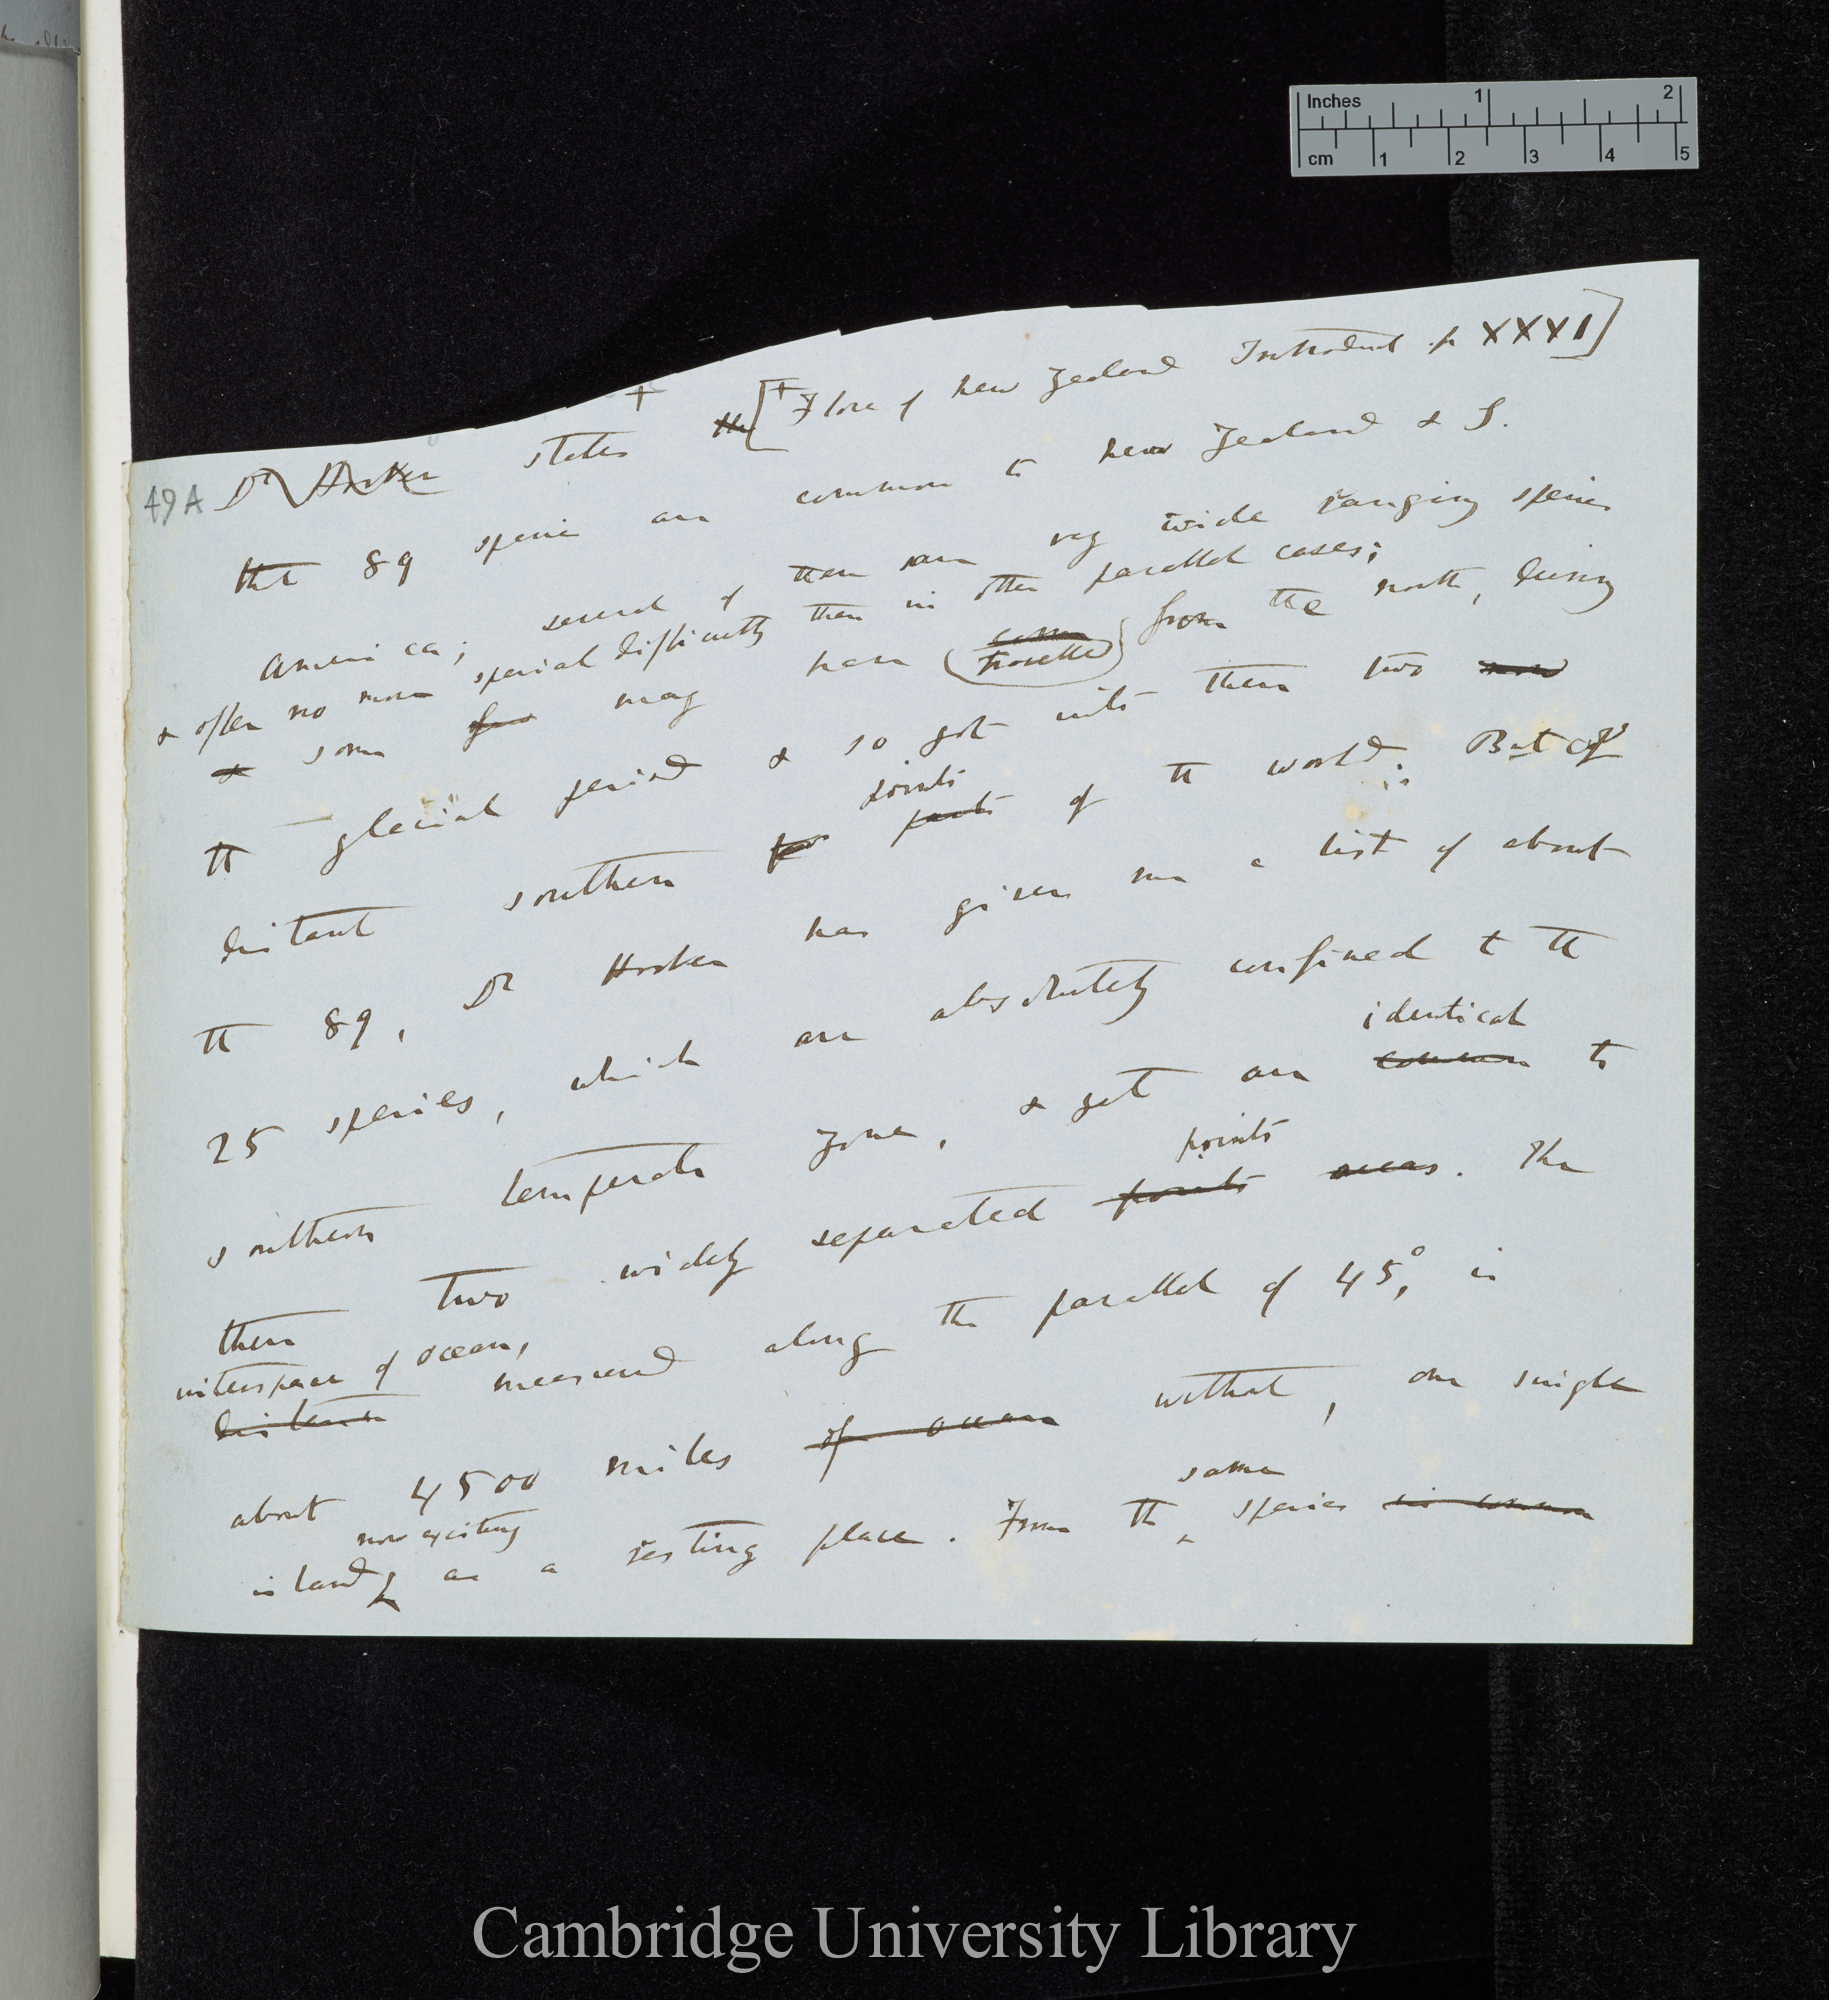 Inches 1 2
cm 1 2 3 4 5
+ [+ Flora of New Zealand Introduct. p XXXI]
49A Dr Hooker states
that 89 species are common to New Zealand & S.
America; several of them are very wide ranging species
& offer no more special difficulty than in other parallel cases;
& some may have (travelled) from the north, during
the glacial period & so got into these two now
points
distant southern parts of the world: But of
the 89, Dr Hooker has given me a list of about
25 species, which are absolutely confined to the
identical
southern temperate zone, & yet are common to
points
these two widely separated points areas. The
interspace of ocean,
distance measured along the parallel of 45°, is
about 4500 miles of ocean without, one single
now existing same
island as a resting place. From the species in common
Cambridge University Library